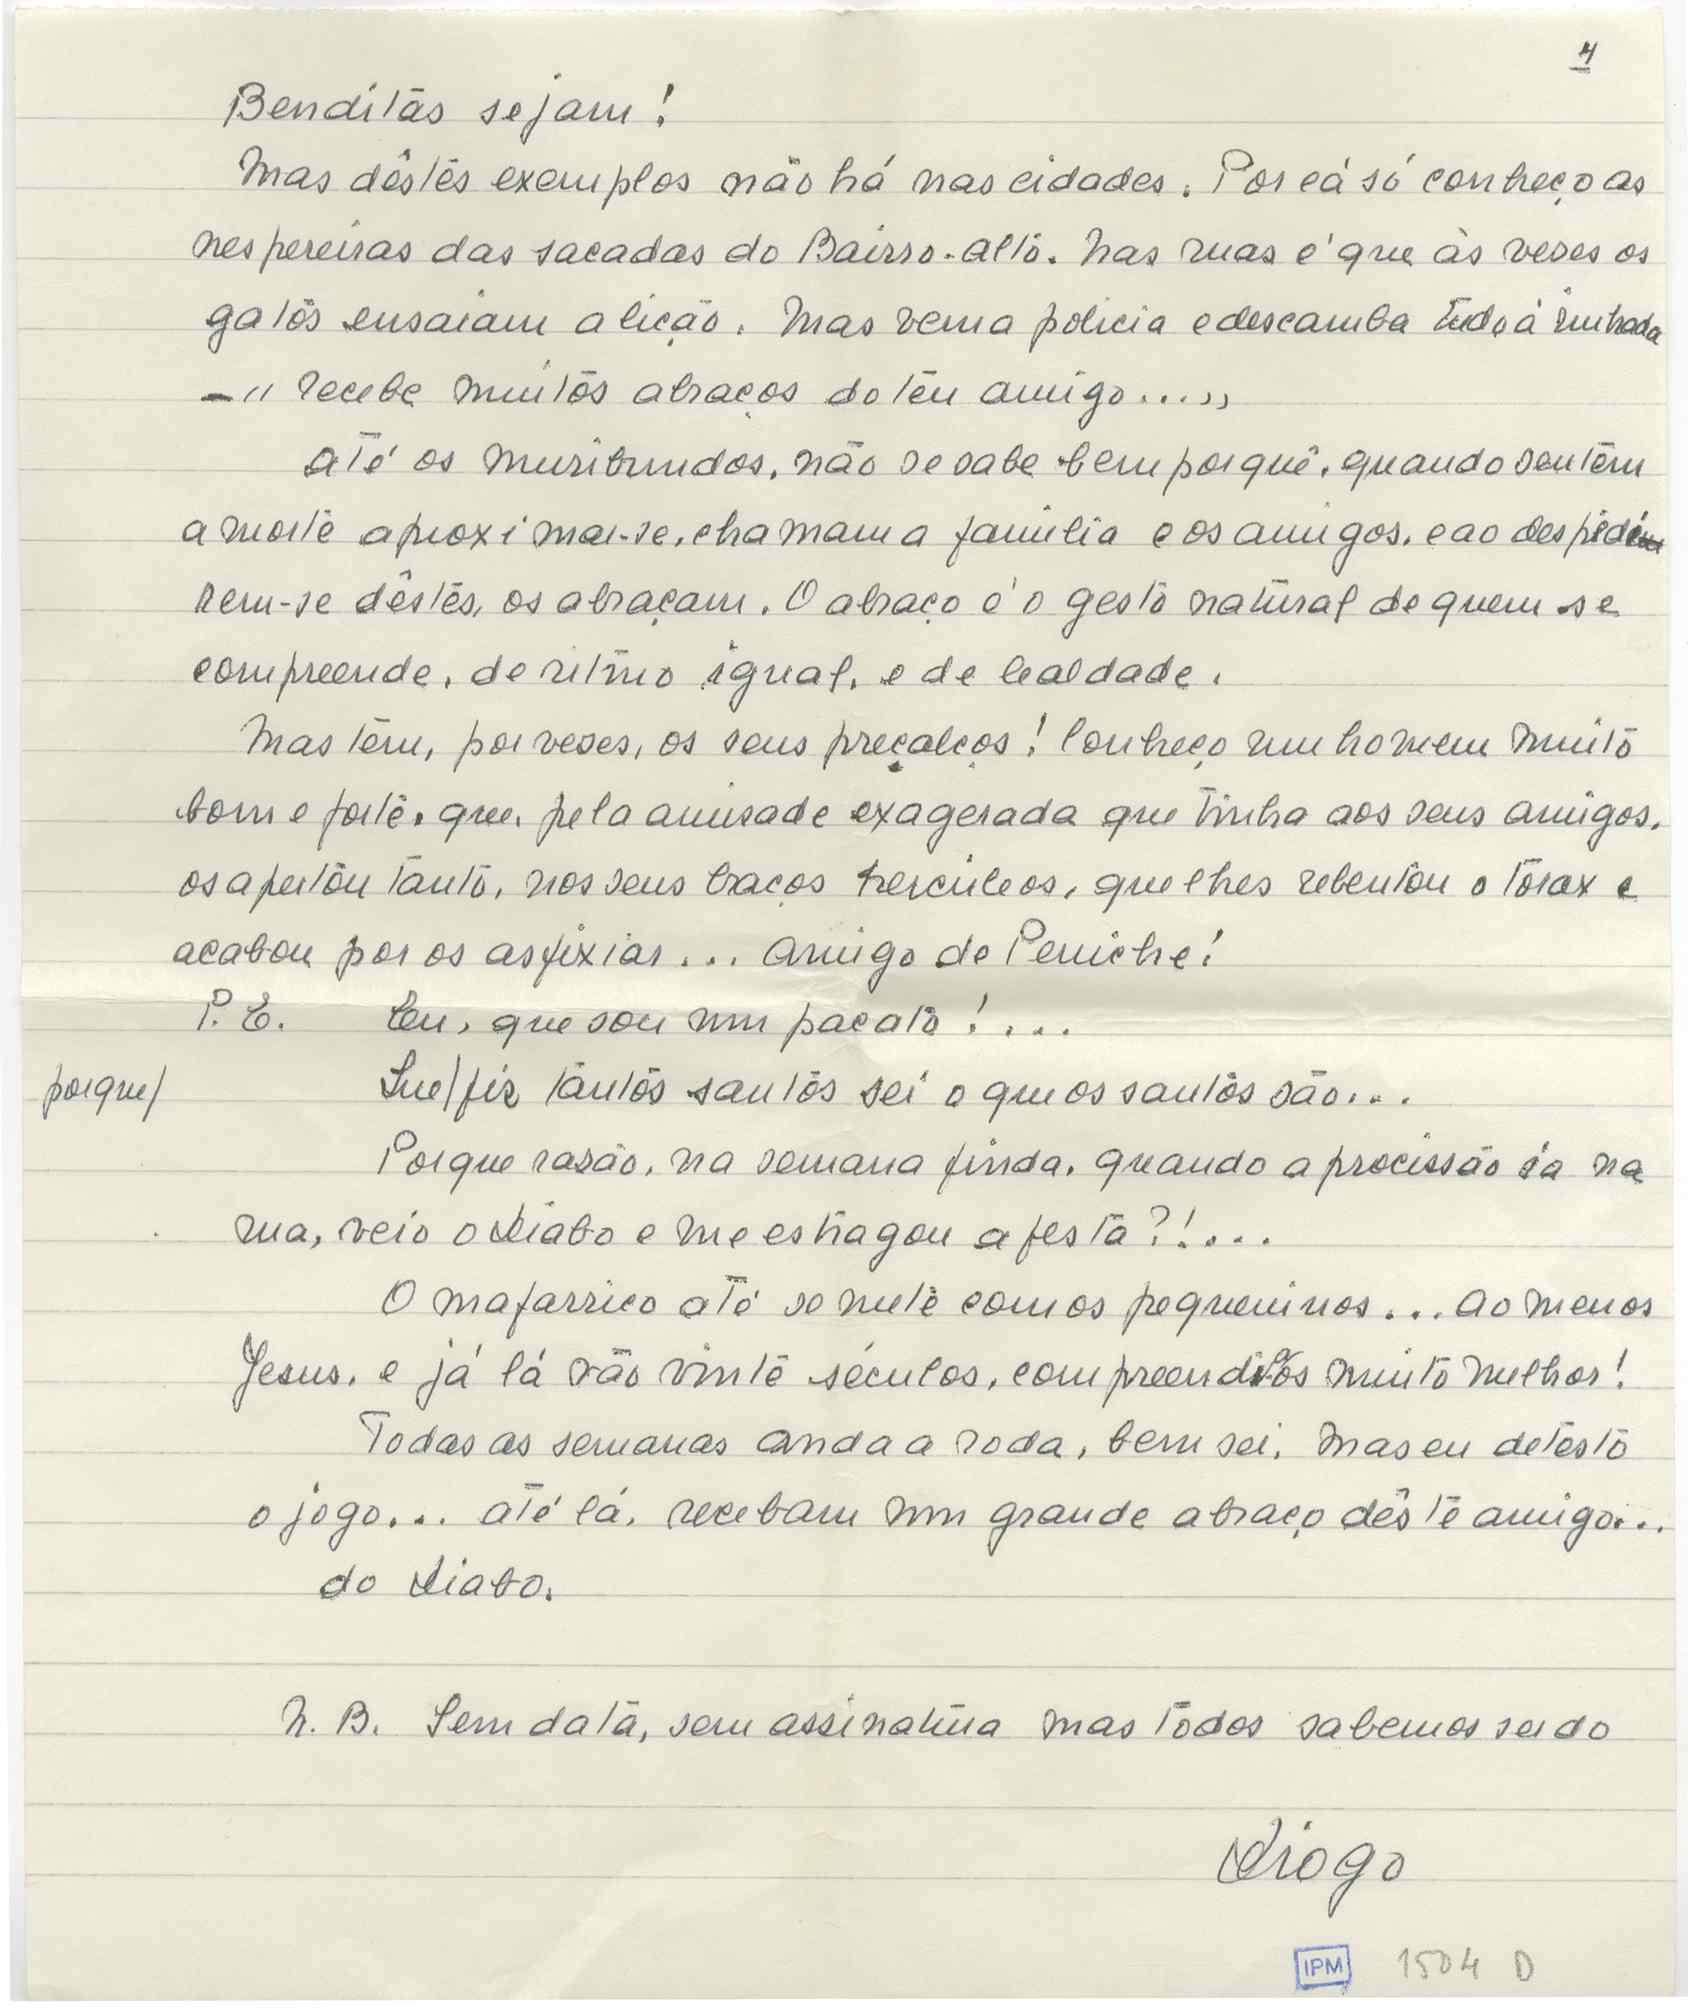 4
Benditas sejam!
Mas dêstes exemplos não há nas cidades. Por cá só conheço as
nespereiras das sacadas do Bairro-alto. Nas ruas é que às veses os
gatos ensaiam a lição. Mas vem a policia e descamba tudo à unhada
-"recebe muitos abraços do teu amigo...."
até os muribundos, não se sabe bem porquê, quando sentem
a morte aproximar-se, chamam a familia e os amigos, e ao despedi
rem-se dêstes, os abraçam. O abraço é o gesto natural de quem se
compreende, de ritmo igual, e de lealdade.
Mas tem, por veses, os seus preçalços! Conheço um homem muito
bom e forte, que, pela amisade exagerada que tinha aos seus amigos,
os apertou tanto, nos seus braços herculeos, que lhes rebentou o torax e
acabou por os asfixiar... amigo de Peniche!
P.E. Eu, que sou um pacato!....
porque/ Que/fiz tantos santos sei o que os santos são...
Porque rasão, na semana finda, quando a procissão ia na
rua, veio o Diabo e me estragou a festa?!....
O mafarrico até se mete com os pequeninos... ao menos
Jesus, e já lá vão vinte séculos, compreendi-os muito melhor!
Todas as semanas anda a roda, bem sei, mas eu detesto
o jogo... até lá, recebam um grande abraço dêste amigo...
do Diabo.
N.B. Sem data, sem assinatura mas todos sabemos ser do
Diogo
IPM 1504 D